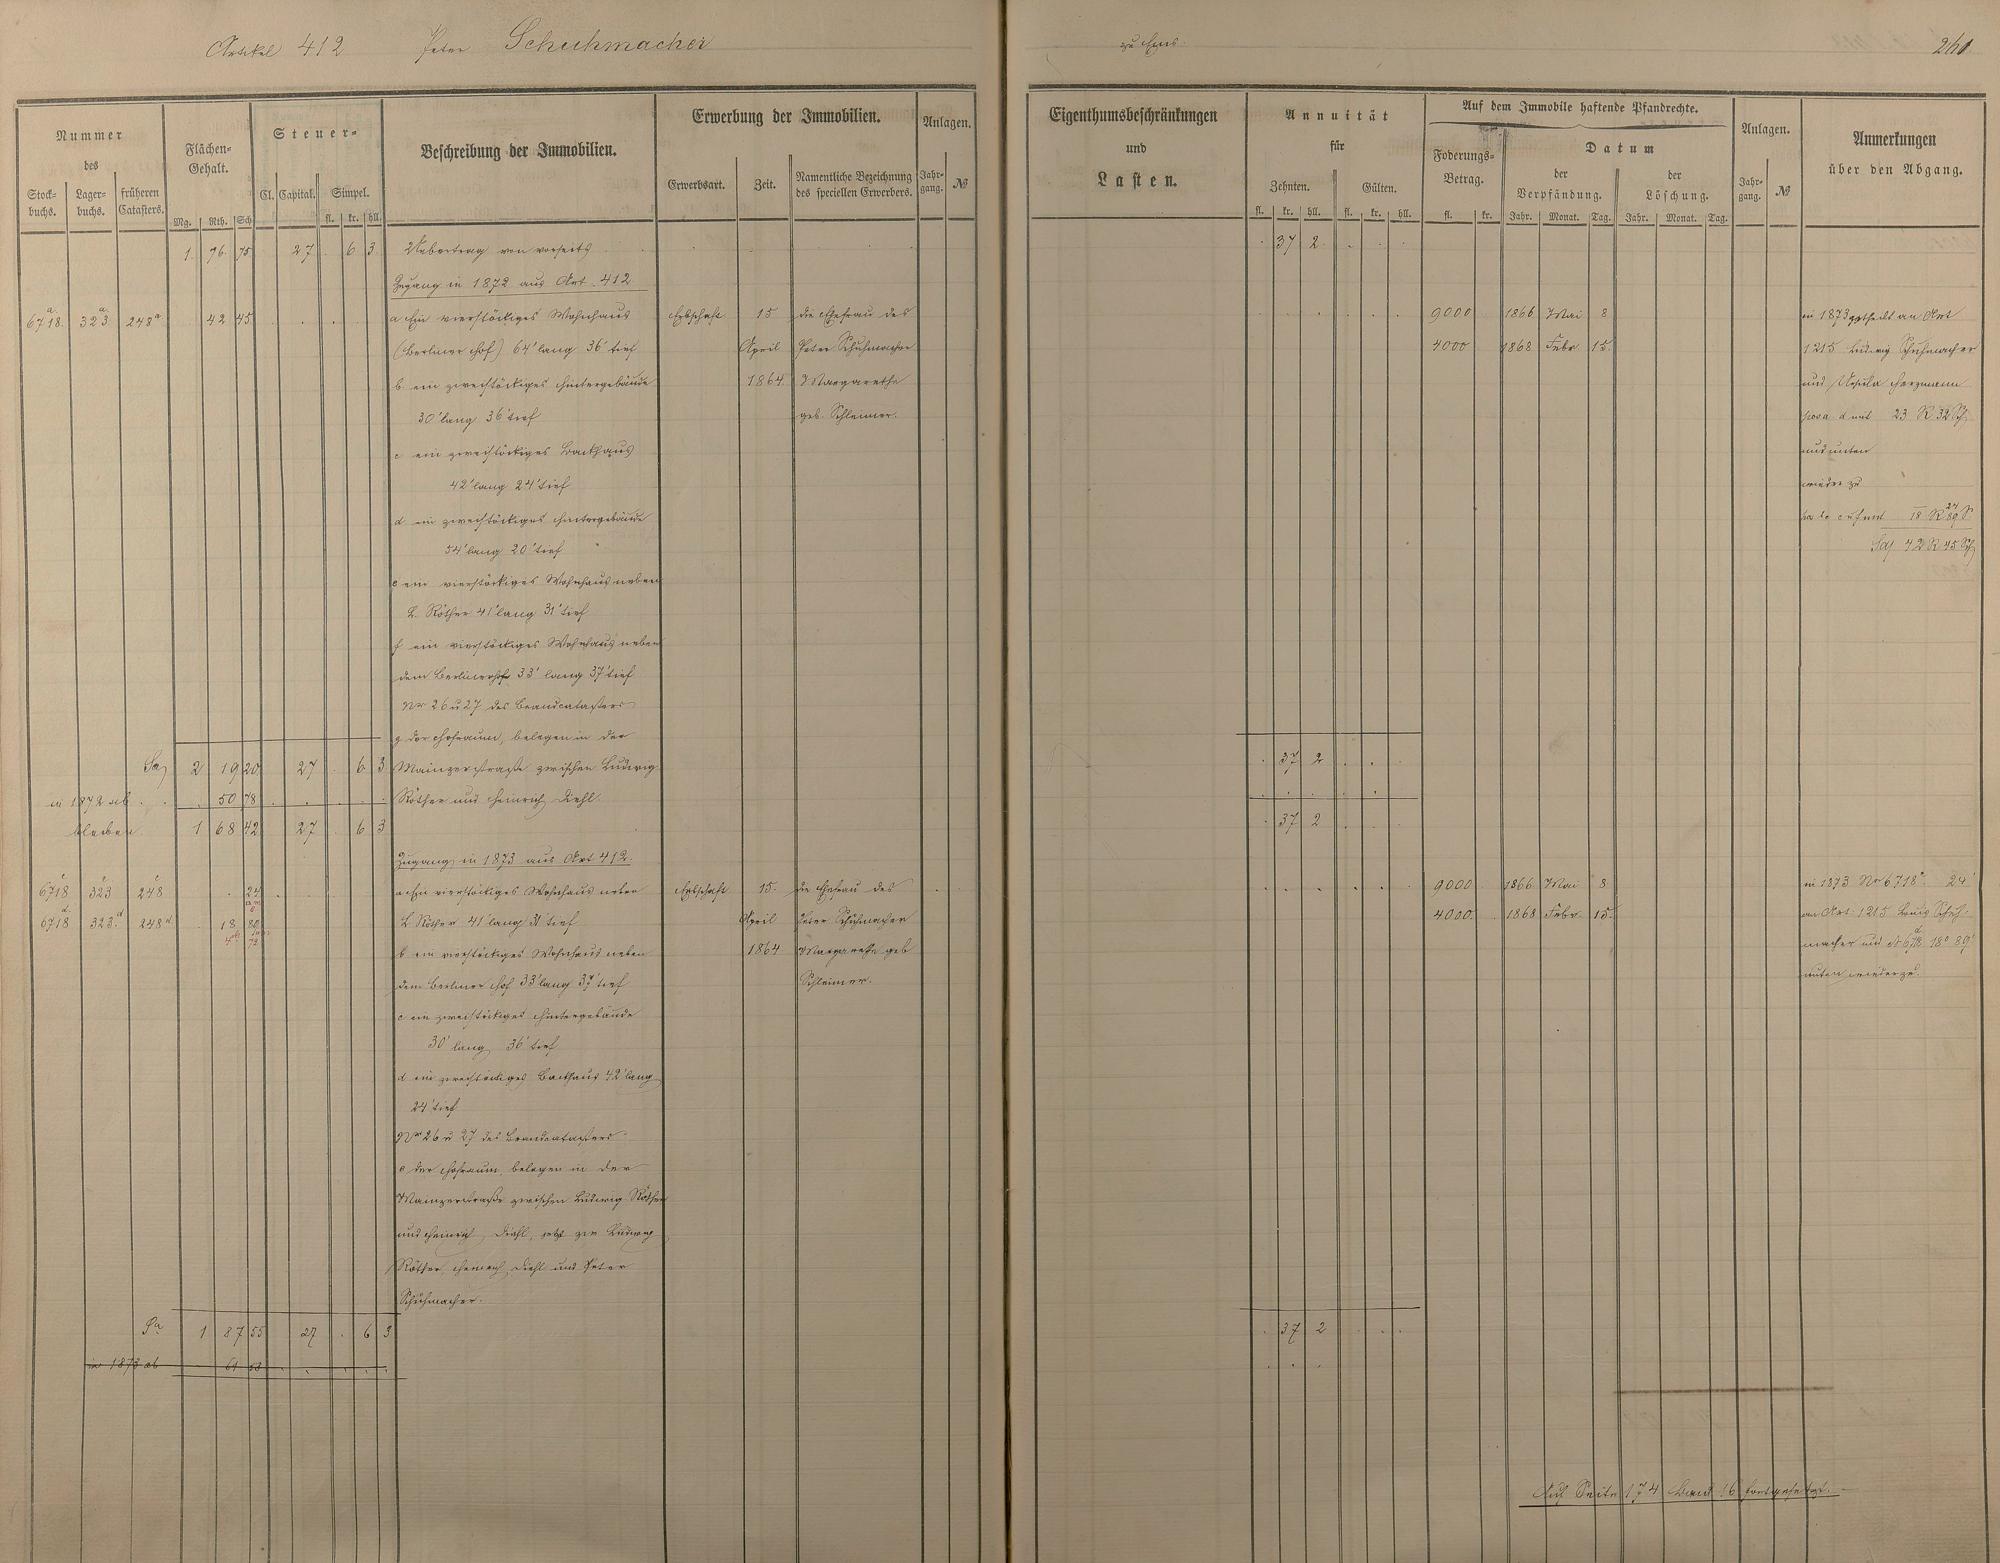 Artikel 412 Peter Schuhmacher
zu Ems.
260
Nummer
des
Stock-
buchs.
Lager-
buchs.
früheren
Catasters.
Flächen-
Gehalt.
Mg. Rth. Sch.
Steuer-
Cl. Capital. Simpel.
fl. kr. hll.
Beschreibung der Immobilien.
Erwerbung der Immobilien.
Erwerbsart. Zeit.
Namentliche Bezeichnung
des speciellen Erwerbers.
Anlagen.
Jahr-
gang. №
Eigenthumsbeschränkungen
und
Lasten.
Annuität
für
Zehnten. Gülten.
fl. kr. hll. fl. kr. hll.
Auf dem Immobile haftende Pfandrechte.
Foderungs-
Betrag.
fl. kr.
Datum
der
Verpfändung.
Jahr. Monat. Tag.
der
Löschung.
Jahr. Monat. Tag.
Anlagen.
Jahr-
gang. №
Anmerkungen
über den Abgang.
1 76 75 27 6 3 Uebertrag von vorseits 37 2
Zugang in 1872 aus Art. 412
6718a 323a 248a 42 45 a Ein vierstöckiges Wohnhaus Erbschaft 15 die Ehefrau des 9000 1866 Mai 8 in 1873 getheilt an Art
(Berliner Hof) 64' lang 36' tief April Peter Schuhmacher 4000 1868 Febr. 15. 1215 Ludwig Schuhmacher
b ein zweistöckiges Hintergebäude 1864. Margarethe und Ursula Herzmann
30' lang 36' tief geb. Schleimer. pos a d mit 23 R 32 Sch
c ein zweistöckiges Backhaus und unten
42' lang 24' tief wieder zu
d ein zweistöckiges Hintergebäude 18 R 89 S
54' lang 20' tief Sa 42 R 45 Sch
e ein vierstöckiges Wohnhaus neben
L. Röther 41' lang 31' tief
f ein vierstöckiges Wohnhaus neben
dem Berlinerhof 33' lang 37' tief
Nr 26 u 27 des Brandcatasters
g der Hofraum, belegen in der
Sa 2 19 20 27 6 3 Mainzerstraße zwischen Ludwig 37 2
in 1872 ab 50 78 Röther und Heinrich Diehl.
bleiben 1 68 42 27 6 3 37 2
Zugang in 1873 aus Art 412.
6718c 323c 248c 24 a Ein vierstöckiges Wohnhaus neben Erbschaft 15. die Ehefrau des 9000 1866 Mai 8 in 1873 Nr 6718c 24'
6718d 323d 248d 18 89 L Röther 41' lang 31' tief April Peter Schuhmacher 4000. 1868 Febr. 15. an Art. 1215 Louis Schuh-
b ein vierstöckiges Wohnhaus neben 1864 Margarethe geb macher und N 6718d 18° 89'
dem Berliner Hof 33' lang 37' tief Schleimer. unten wieder zu.
c ein zweistöckiges Hintergebäude
30' lang 36' tief
d ein zweistöckiges Backhaus 42' lang
24' tief
Nr 26 u 27 des Brandcatasters
e der Hofraum, belegen in der
Mainzerstraße zwischen Ludwig Röther
und Heinrich Diehl, jetzt zw Ludwig
Röther, Heinrich Diehl und Peter
Schuhmacher.
Sa 1 87 55 27 6 3 37 2
in 1873 ab 61 53
Auf Seite 174 Band 16 fortgesetzt.